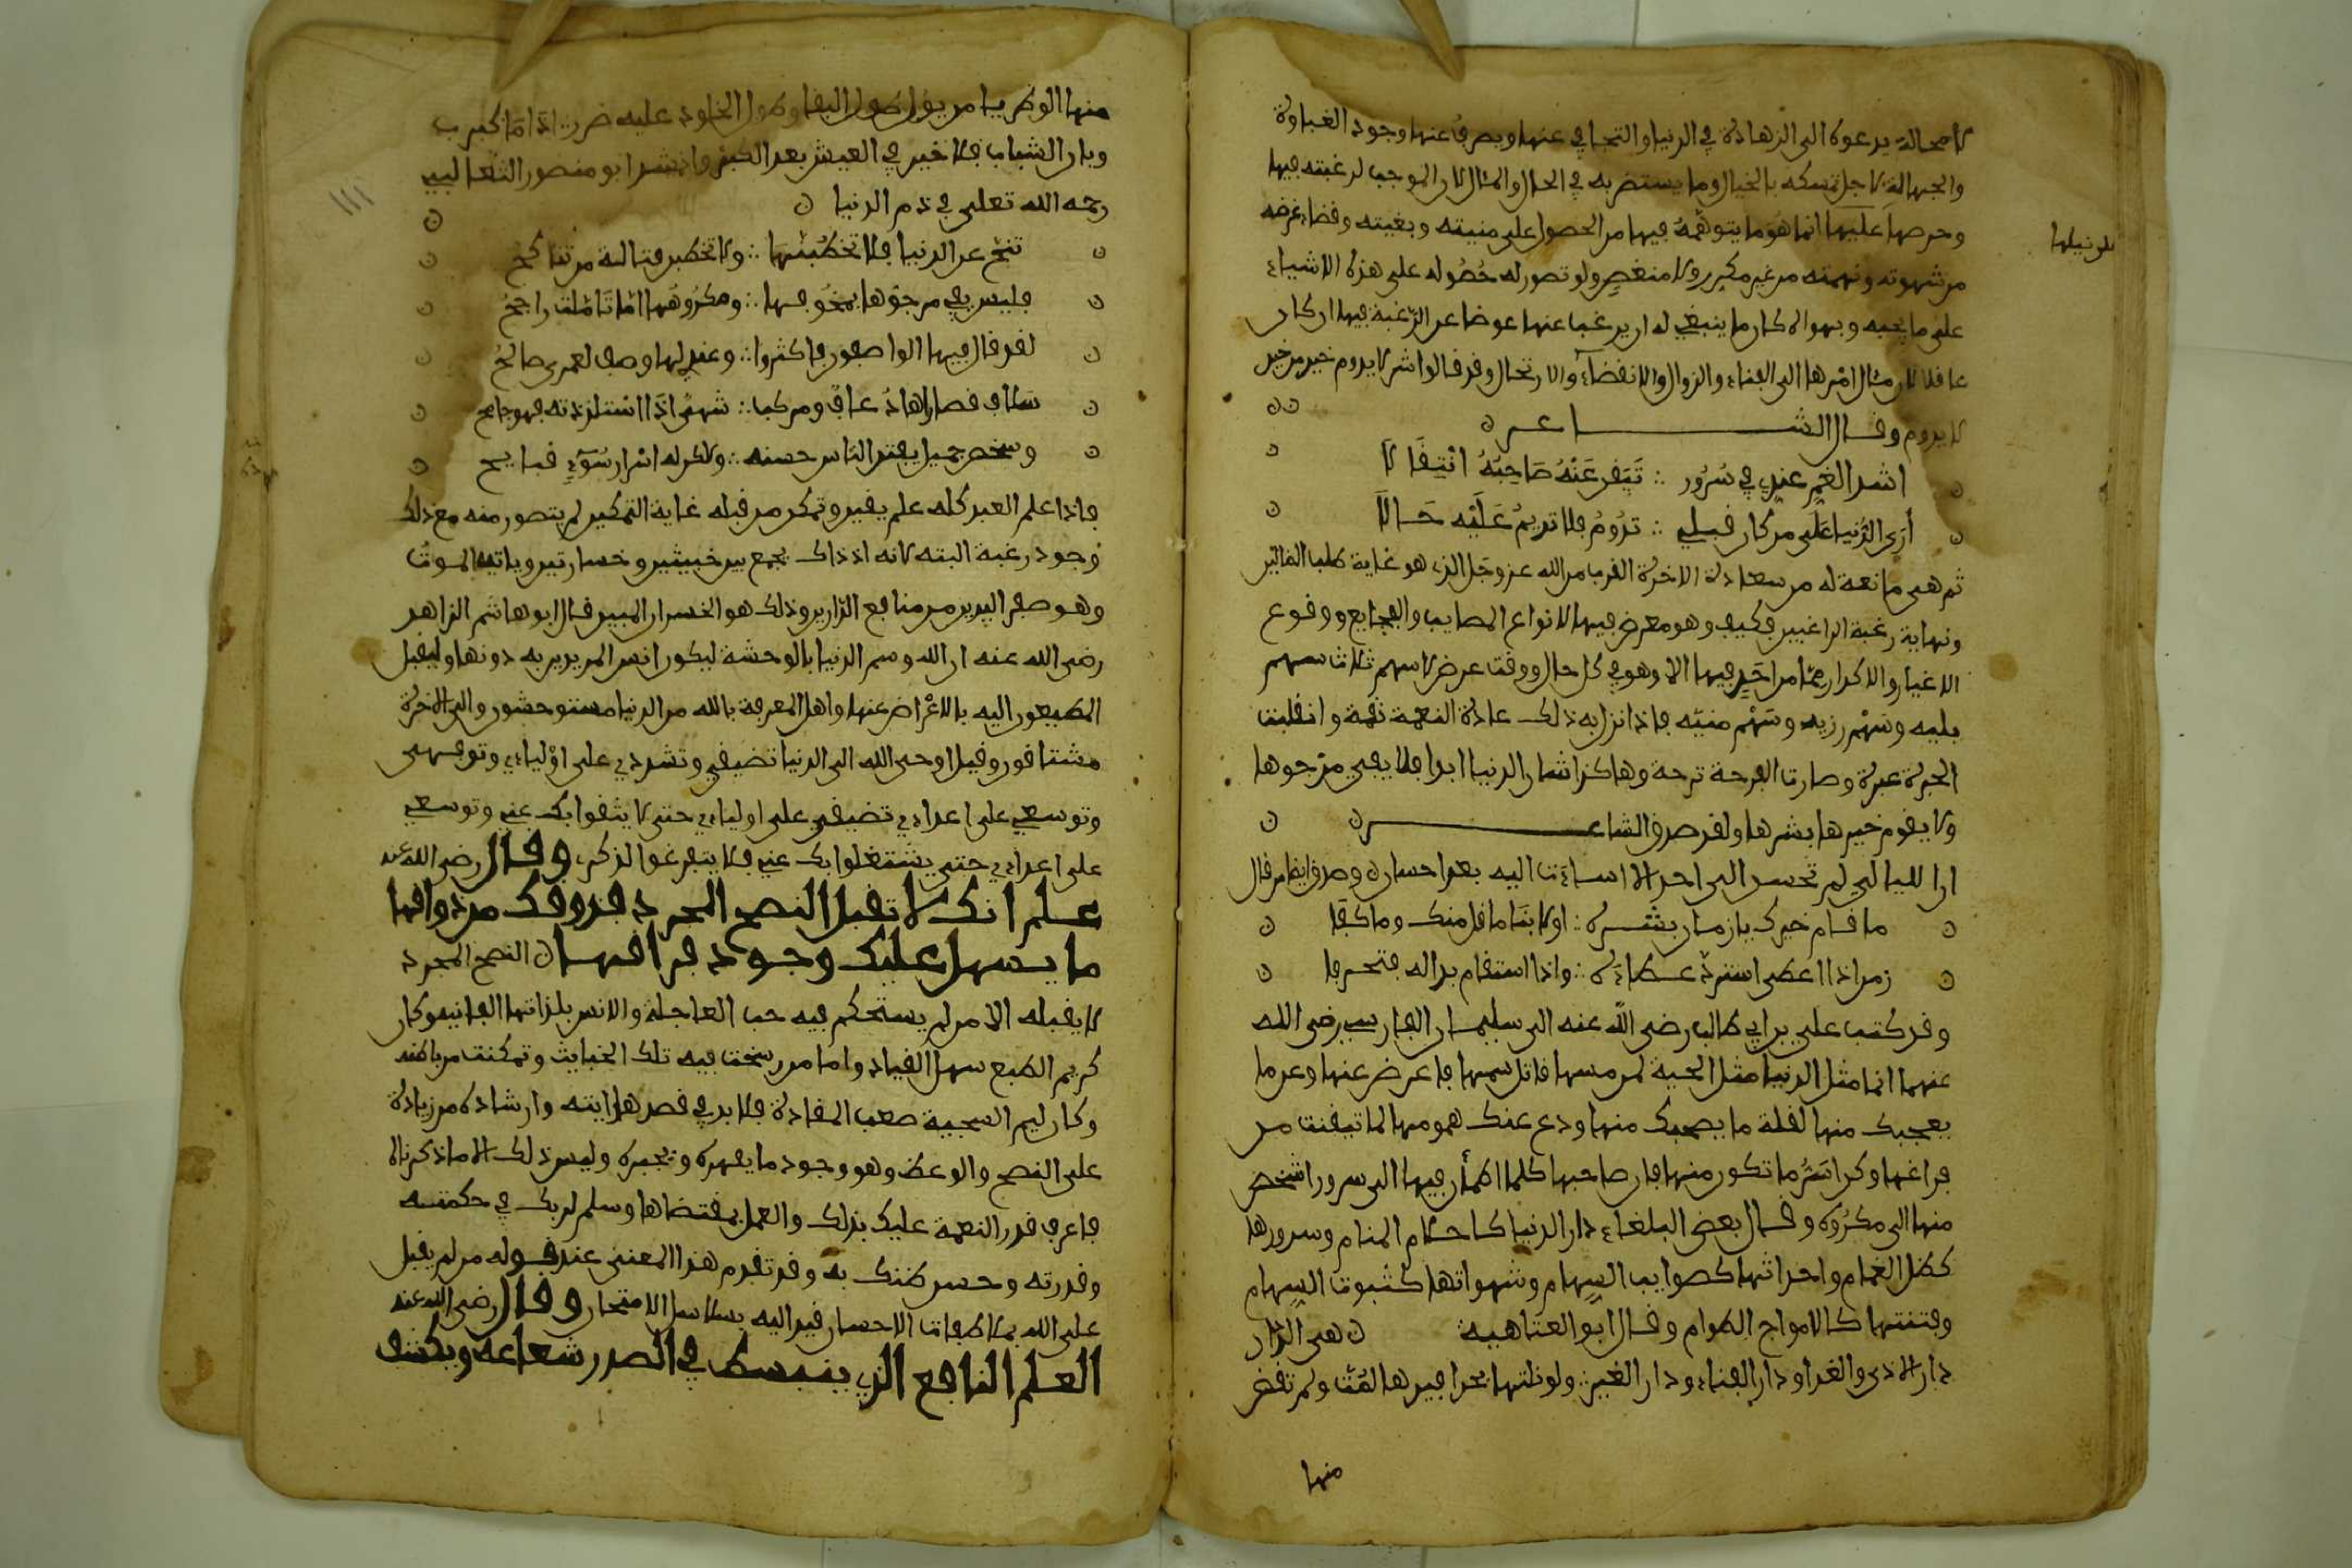 لا محالة يدعوه الى الزهادة في الدنيا والتجافي عنها ويصرف عنها وجود الغباوة
والجهالة لاجل تمسكه بالخيال وما يستضر به في الحال والمئال لان الموجب لرغبته فيها
وحرصه عليها انما هو ما يتوهمه فيها من الحصول على منيته وبغيته وقضاء غرضه
من شهوته ونهمته من غير مكدر ولا منغص ولو تصور له حصوله على هذه الاشياء
على ما يحبه ويهواه لكان ما ينبغي له ان يرغب عنها عوضا عن الرغبة فيها ان كان
عاقلا لان مئال امرها الى الفناء والزوال والانقضاء والارتحال وقد قالوا شر لا يدوم خير من خير
لا يدوم وقال الشاعر
اشد الغم عندي في سرور ∴ تيقن عنه صاحبه انتقالا
أرى الدنيا على من كان قبلي ∴ تدوم فلا تديم عليه حالا
ثم هي مانعة له من سعادة الاخرة القرب من الله عز وجل الذي هو غاية طلب الطالبين
ونهاية رغبة الراغبين فكيف وهو معرض فيها لانواع المصايب والفجايع ووقوع
الاغيار والاكدار فما من احد فيها الا وهو في كل حال ووقت عرض لاسهم ثلاث سهم
بلية وسهم رزية وسهم منية فاذا نزل به ذلك عادة النعمة نقمة وانقلبت
الحبرة عبرة وصارت الفرحة ترحة وهاكذا شان الدنيا ابدا فلا يفي مرجوها
ولا يقوم خيرها بشرها ولقد صدق الشاعر
ان الليالي لم تحسن الى احد الا اساءت اليه بعد احسان وصدق ايضا من قال
ما قام خيرك يا زمان بشره ∴ اولا بنا ما قل منك وما كفا
زمن اذا اعطى استرد عطاءه ∴ واذا استقام بدا له فتحرفا
وقد كتب علي بن ابي طالب رضي الله عنه الى سليمان الفارسي رضي الله
عنهما انما مثل الدنيا مثل الحية لين مسها قاتل سمها فاعرض عنها وعن ما
يعجبك منها لقلة ما يصحبك منها ودع عنك همومها لما تيقنت من
فراغها وكن اسر ما تكون منها فان صاحبها كلما اطمأن فيها الى سرور اشخص
منها الى مكروه وقال بعض البلغاء دار الدنيا كاحلام المنام وسرورها
كظل الغمام واحداثها كصوايب السهام وشهواتها كثبوت السهام
وفتنتها كالامواج الطوام وقال ابو العتاهية هي الدار
دار الاذى والقذا ودار الفناء ودار الغير ولو نلتها بحذافيرها لمت ولم تقض
منها
منها الوطر يا من يؤمل طول البقا وطول الخلود عليه ضرر اذا ما كبرت
وبان الشباب فلا خير في العيش بعد الكبر وانشد ابو منصور الثعالبي
رحمه الله تعلى في ذم الدنيا
تنح عن الدنيا فلا تخطبنها ∴ ولا تخطبن قتالة من تناكح
فليس يفي مرجوها بمخوفها ∴ ومكروهها اما تأملت راجح
لقد قال فيها الواصفون فاكثروا ∴ وعندي لها وصف لعمري صالح
سلاف قصاراها ذعاف ومركب ∴ شهي اذا استلذذته فهو جامح
وشخص جميل يفتن الناس حسنه ∴ ولاكن له اسرار سوء قبايح
فاذا علم العبد كله علم يقين وتمكن من قبله غاية التمكين لم يتصور منه مع ذلك
وجود رغبة البته لانه اذ ذاك يجمع بين خبيثين وخسارتين وياتيه الموت
وهو صفر اليدين من منافع الدارين وذلك هو الخسران المبين قال ابو هاشم الزاهد
رضي الله عنه ان الله وسم الدنيا بالوحشة ليكون انس المريدين به دونها وليقبل
المطيعون اليه بالاعراض عنها واهل المعرفة بالله من الدنيا مستوحشون والى الاخرة
مشتاقون وقيل اوحى الله الى الدنيا تضيقي وتشددي على اوليائي وترفهي
وتوسعي على اعدائي تضيقي على اوليائي حتى لا يشغلوا بك عني وتوسعي
على اعدائي حتى يشتغلوا بك عني فلا يتفرغوا لذكري وقال رضي الله عنه
علم انك لا تقبل النصح المجرد فذوقك من ذواقها
ما يسهل عليك وجود فراقها النصح المجرد
لا يقبله الا من لم يستحكم فيه حب العاجلة والانس بلذاتها الفانية وكان
كريم الطبع سهل القياد واما من رسخت فيه تلك الخبايث وتمكنت من باطنه
وكان ليم السجية صعب المقادة فلا بد في قصد هدايته وارشاده من زيادة
على النصح والوعظ وهو وجود ما يقهره ويجبره وليس ذلك الا ما ذكرناه
فاعرف قدر النعمة عليك بذلك والعمل بمقتضاها وسلم لربك في حكمته
وقدرته وحسن ظنك به وقد تقدم هذا المعنى عند قوله من لم يقبل
على الله بملاطفات الاحسان قيد اليه بسلاسل الامتحان وقال رضي الله عنه
العلم النافع الذي ينبسط في الصدر شعاعه ويكشف